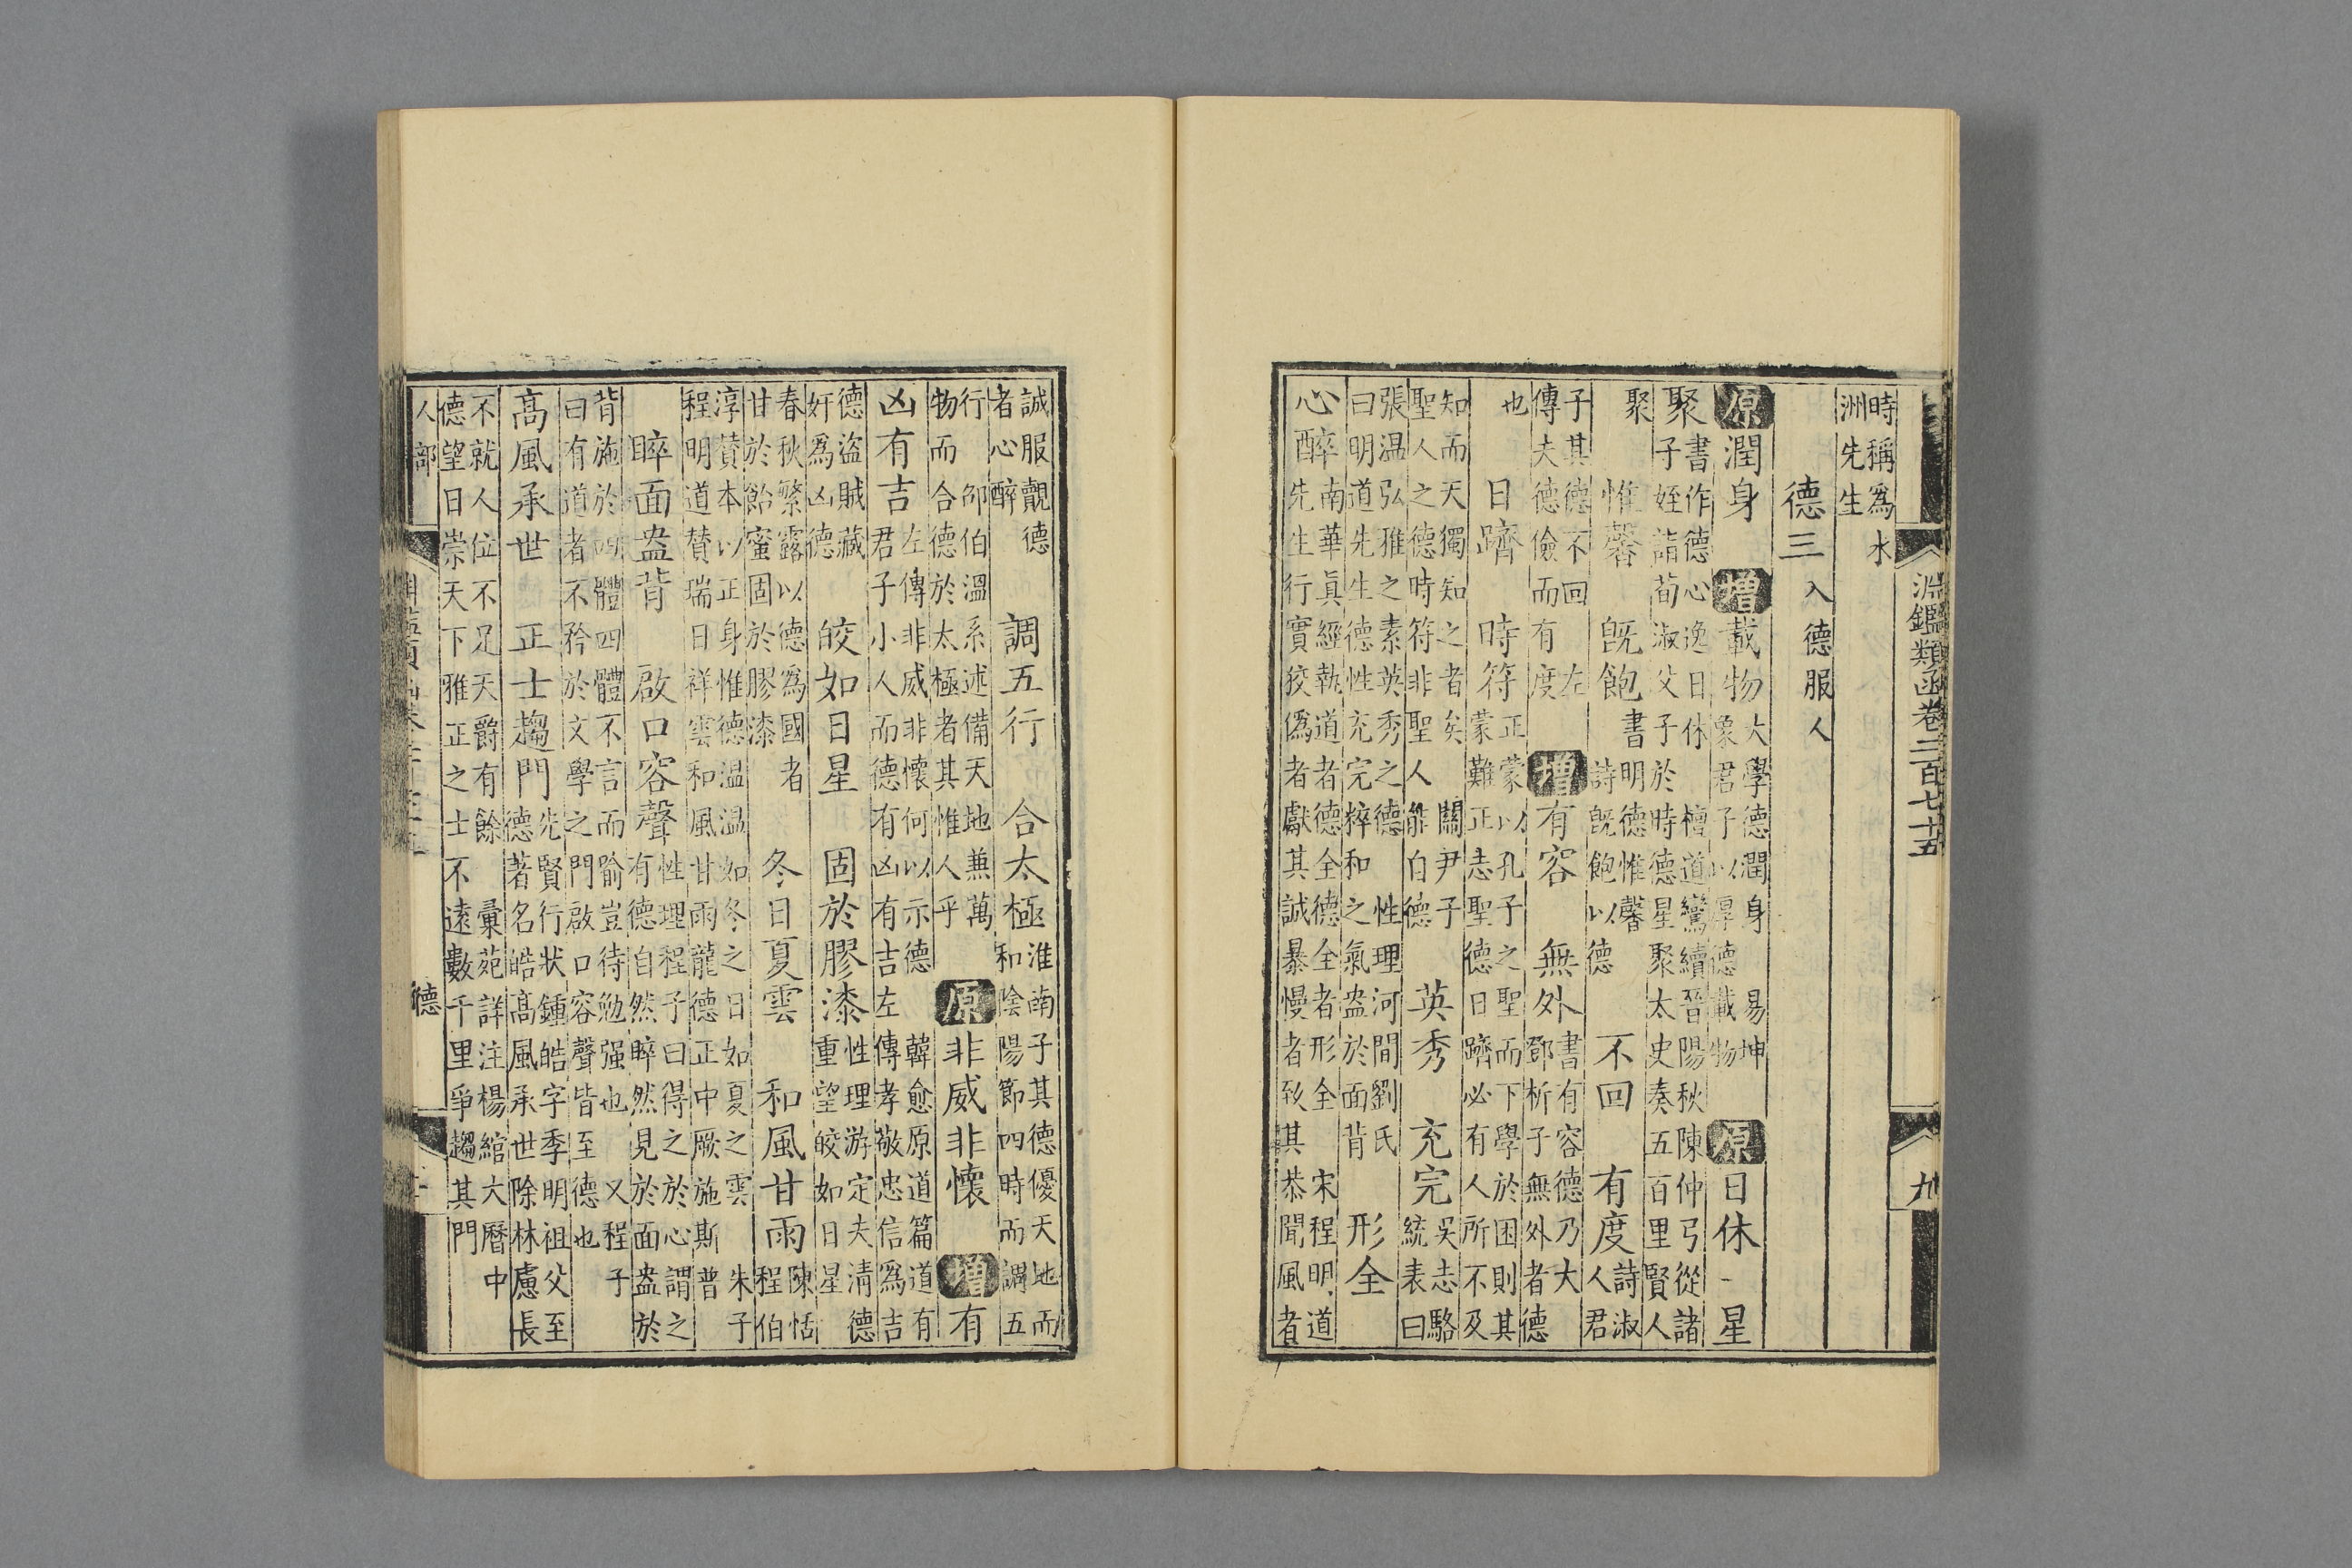 淵鑑類函卷二百七十五 九
時稱爲水洲先生
德三入德服人
原潤身 增載物大學德潤身 易坤象君子以厚德載物 原日休 星
聚書作德心逸日休 檀道鸞續晉陽秋陳仲弓從諸子姪詣荀淑父子於時德星聚太史奏五百里賢人
聚 惟馨 既飽書明德惟馨 詩既飽以德 不回 有度詩淑人君
子其德不回 左傳夫德儉而有度 增有容 無外書有容德乃大 鄧析子無外者德
也 日躋 時符正蒙以孔子之聖而下學於困則其蒙難正志聖德日躋必有人所不及
知而天獨知之者矣 關尹子聖人之德時符非聖人能自德 英秀 充完吳志駱統表曰
張温弘雅之素英秀之德 性理河間劉氏曰明道先生德性充完粹和之氣盎於面背 形全
心醉南華真經執道者德全德全者形全 宋程明道先生行實狡僞者獻其誠暴慢者致其恭聞風者
誠服覿德者心醉 調五行 合太極淮南子其德優天地而和陰陽節四時而調五
行 邵伯溫系述備天地兼萬物而合德於太極者其惟人乎 原非威非懷 增有
凶有吉左傳非威非懷何以示德 韓愈原道篇道有君子小人而德有凶有吉左傳孝敬忠信爲吉
德盜賊藏奸爲凶德 皎如日星 固於膠漆性理游定夫清德重望皎如日星
春秋繁露以德爲國者甘於飴蜜固於膠漆 冬日夏雲 和風甘雨陳恬程伯
淳賛本以正身惟德温温如冬之日如夏之雲 朱子程明道賛瑞日祥雲和風甘雨龍德正中厥施斯普
睟面盎背 啟口容聲性理程子曰得之於心謂之有德自然睟然見於面盎於
背施於四體四體不言而喻豈待勉强也 又程子曰有道者不矜於文學之門啟口容聲皆至德也
高風承世 正士趨門先賢行狀鍾皓字季明祖父至德著名皓高風承世除林慮長
不就人位不足天爵有餘 彙苑詳注楊綰大曆中德望日崇天下雅正之士不遠數千里爭趨其門
人部 德